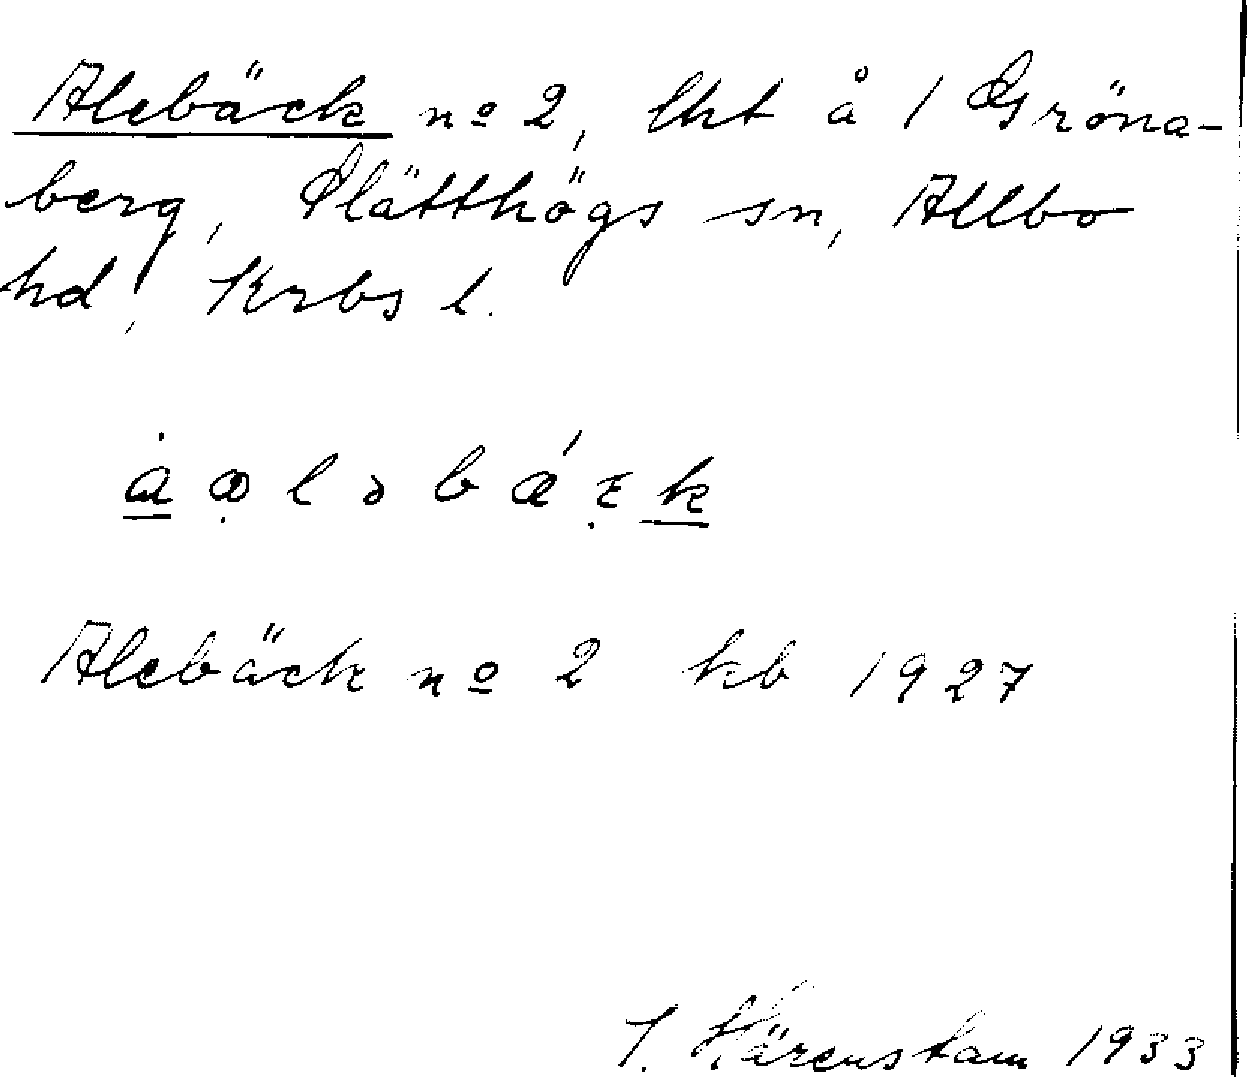 Alebäck nº 2, lht å 1 Gröna-
berg, Slätthögs sn, Allbo
hd, Krbs l.
Alebäck nº 2 kb 1927
J. Härenstam 1933